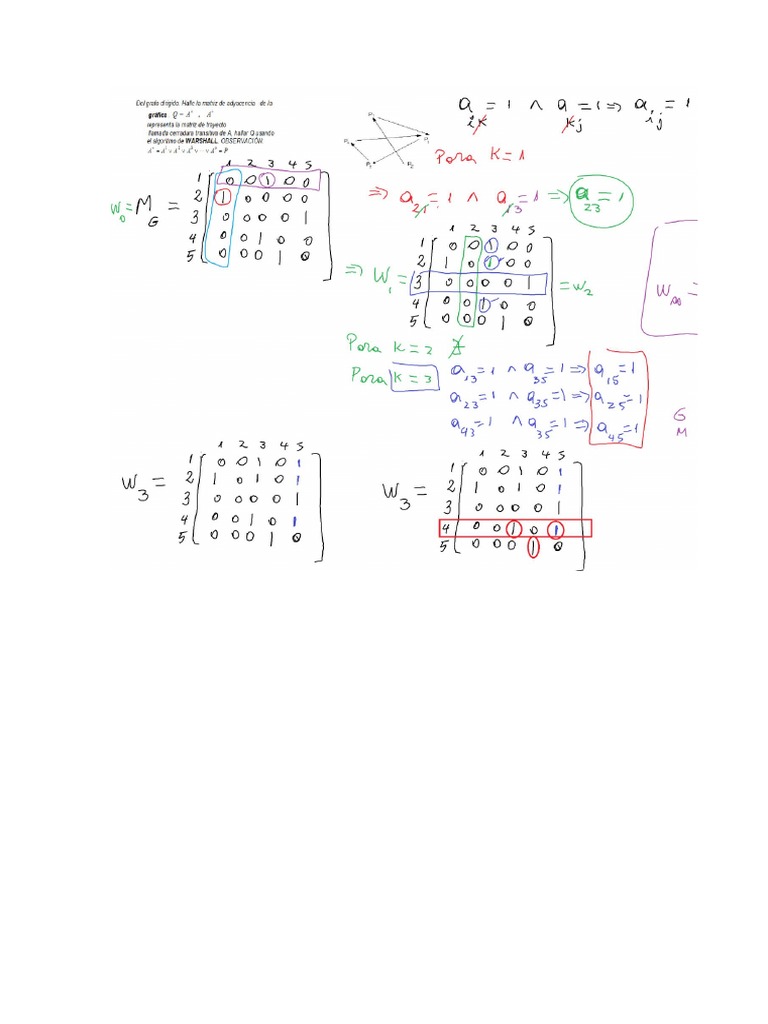 Del grafo dirigido. Halle la matriz de adyacencia de la
gráfica Q = A⁺ , A⁺
representa la matriz de trayecto
llamada cerradura transitiva de A, hallar Q usando
el algoritmo de WARSHALL. OBSERVACIÓN:
a_ik = 1 ∧ a_kj = 1 ⇒ a_ij = 1
Para K = 1
⇒ a_21 = 1 ∧ a_13 = 1 ⇒ a_23 = 1
1 2 3 4 5
1 0 0 1 0 0
W_0 = M_G = 2 1 0 0 0 0
3 0 0 0 0 1
4 0 0 1 0 0
5 0 0 0 1 0
1 2 3 4 5
1 0 0 1 0 0
2 1 0 1 0 0
⇒ W_1 = 3 0 0 0 0 1 = W_2
4 0 0 1 0 0
5 0 0 0 1 0
W_∞ =
Para K = 2 ∄
Para K = 3
a_13 = 1 ∧ a_35 = 1 ⇒ a_15 = 1
a_23 = 1 ∧ a_35 = 1 ⇒ a_25 = 1
a_43 = 1 ∧ a_35 = 1 ⇒ a_45 = 1
G
M
1 2 3 4 5
1 0 0 1 0 1
W_3 = 2 1 0 1 0 1
3 0 0 0 0 1
4 0 0 1 0 1
5 0 0 0 1 0
1 2 3 4 5
1 0 0 1 0 1
W_3 = 2 1 0 1 0 1
3 0 0 0 0 1
4 0 0 1 0 1
5 0 0 0 1 0